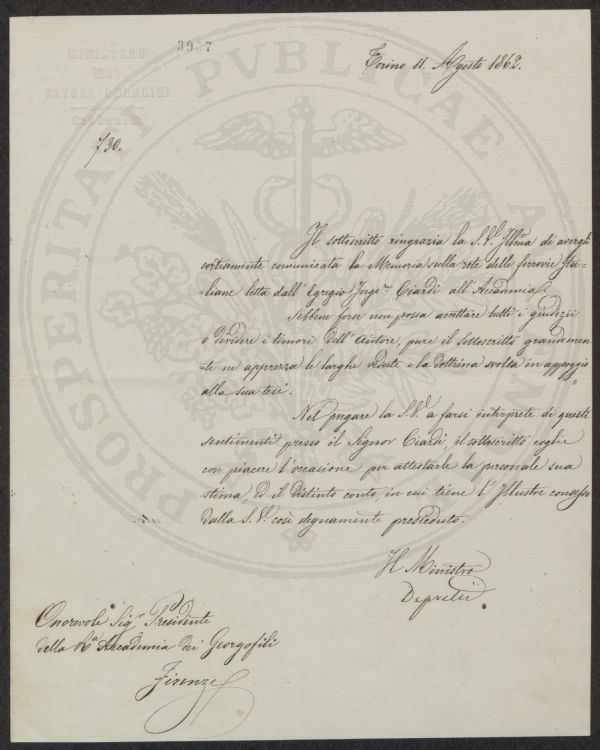 3937
MINISTERO
DEI
LAVORI PUBBLICI
Gabinetto
730.
Torino 11 Agosto 1862.
PROSPERITATI PVBLICAE AV
Il sottoscritto ringrazia la S. V. Illma di avergli
cortesemente comunicata la Memoria sulla rete delle ferrovie Ita-
liane letta dall'Egregio Ingre Ciardi all'Accademia.
Sebbene forse non possa accettare tutti i giudizii
o dividere i timori dell'autore, pure il sottoscritto grandemen-
te ne apprezza le larghe vedute e la dottrina svolta in appoggio
alla sua tesi.
Nel pregare la S. V. a farsi interprete di questi
sentimenti presso il Signor Ciardi, il sottoscritto coglie
con piacere l'occasione per attestarle la personale sua
stima, ed il distinto conto, in cui tiene l'Illustre consesso
dalla S. V. così degnamente presieduto.
Il Ministro
Depretis
Onorevole Sigr Presidente
della Ra Accademia dei Georgofili
Firenze